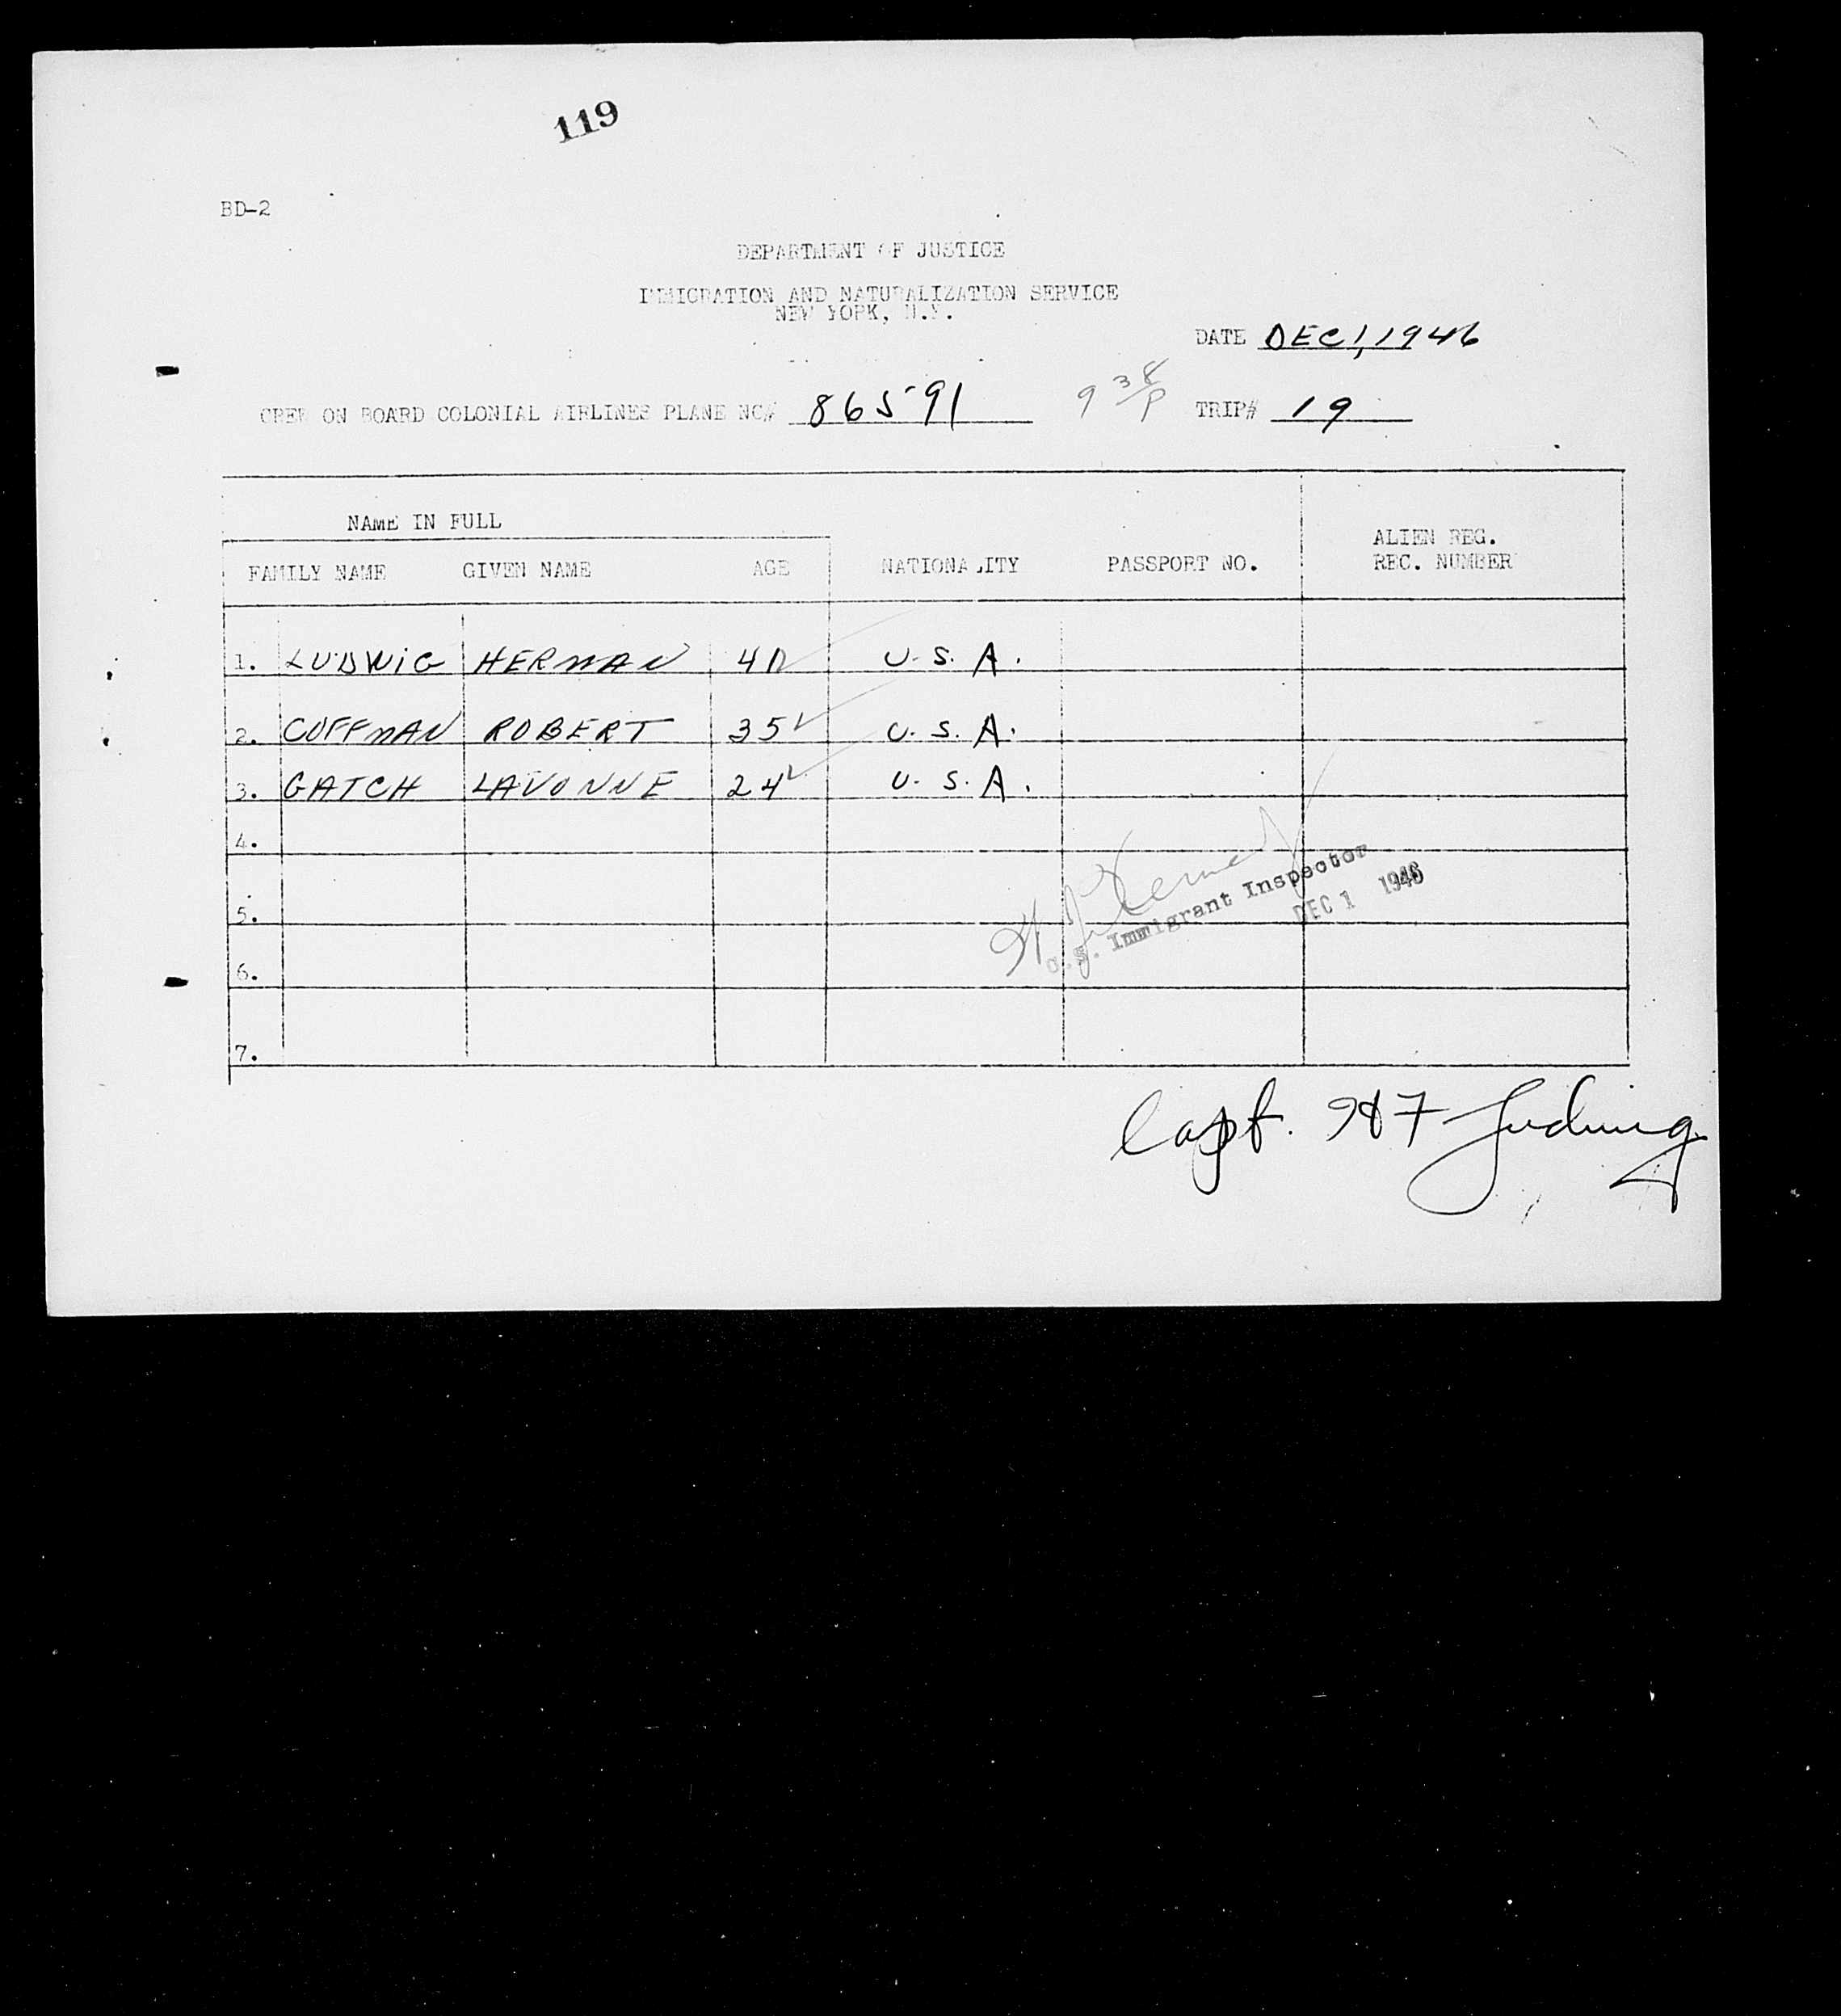 119
BD-2
DEPARTMENT OF JUSTICE
IMMIGRATION AND NATURALIZATION SERVICE
NEW YORK, N.Y.
DATE DEC 1, 1946
CREW ON BOARD COLONIAL AIRLINES PLANE NC# 86591 9 38/P TRIP# 19
NAME IN FULL
FAMILY NAME GIVEN NAME AGE NATIONALITY PASSPORT NO. ALIEN REG. REC. NUMBER
1. LUDWIG HERMAN 40 U.S.A.
2. COFFMAN ROBERT 35 U.S.A.
3. GATCH LAVONNE 24 U.S.A.
4.
U.S. Immigrant Inspector
DEC 1 1946
5.
6.
7.
Capt. H F Ludwig